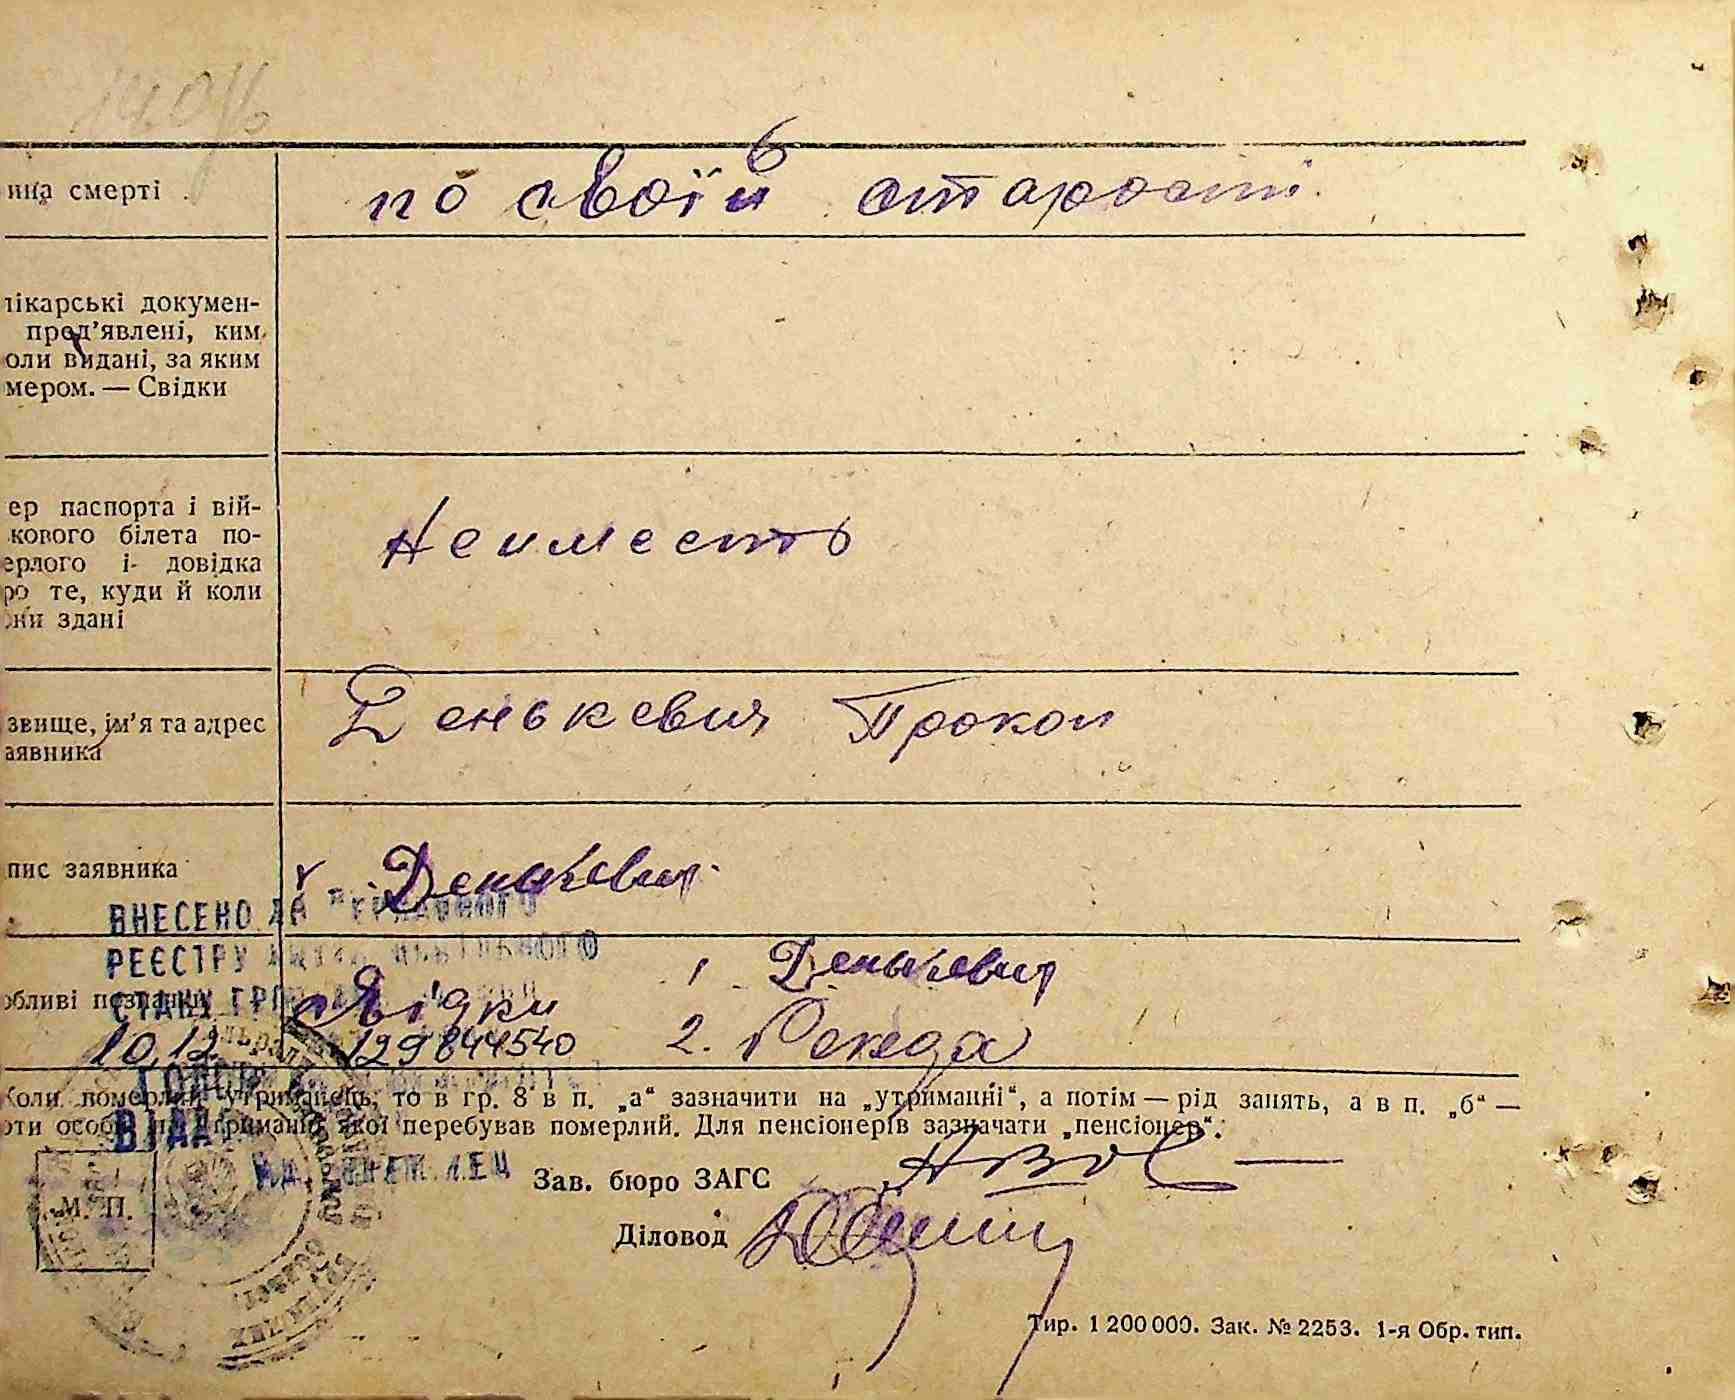 смерті
по своїй старості
лікарські докумен-
пред'явлені, ким
оли видані, за яким
мером. — Свідки
ер паспорта і вій-
кового білета по-
ерлого і довідка
ро те, куди й коли
они здані
Неимееть
звище, ім'я та адрес
аявника
Денькевич Прокоп
пис заявника
Денькевич
ВНЕСЕНО ДО ДЕРЖАВНОГО
РЕЄСТРУ АКТІВ ЦИВІЛЬНОГО
1 Денькевич
обливі
СТАНУ
свідки
10.12.
129844540
2.
Коли померлий утриманець, то в гр. 8 в п. „а“ зазначити на „утриманні“, а потім — рід занять, а в п. „б“ —
оти особи, на утриманні якої перебував померлий. Для пенсіонерів зазначати „пенсіонер“.
ВІДД
Зав. бюро ЗАГС
М. П.
Діловод
Тир. 1 200 000. Зак. № 2253. 1-я Обр. тип.